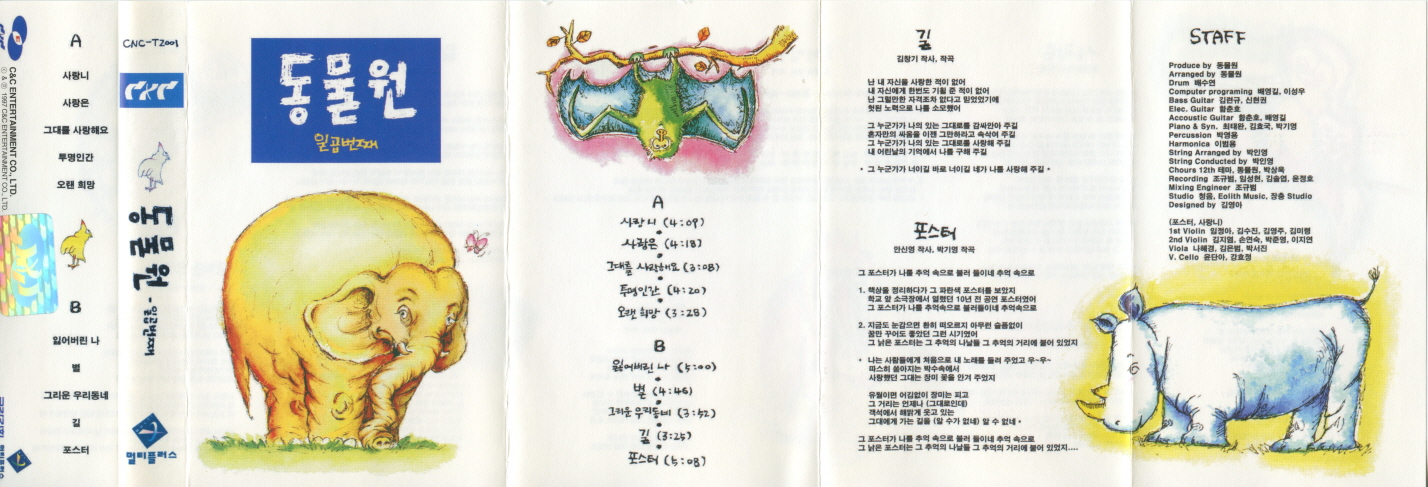 C&C ENTERTAINMENT CO., LTD.
ⓒ & ⓟ 1997 C&C ENTERTAINMENT CO., LTD.
A
사랑니
사람은
그대를 사랑해요
투명인간
오랜 희망
B
잃어버린 나
별
그리운 우리동네
길
포스터
CNC-T2001
C&C
동물원 - 일곱번째
멀티플러스
동물원
일곱번째
A
사랑니 (4:09)
사람은 (4:18)
그대를 사랑해요 (3:08)
투명인간 (4:20)
오랜 희망 (3:28)
B
잃어버린 나 (5:00)
별 (4:46)
그리운 우리동네 (3:52)
길 (3:25)
포스터 (5:08)
길
김창기 작사, 작곡
난 내 자신을 사랑한 적이 없어
내 자신에게 한번도 기횔 준 적이 없어
난 그럴만한 자격조차 없다고 믿었었기에
헛된 노력으로 나를 소모했어
그 누군가가 나의 있는 그대로를 감싸안아 주길
혼자만의 싸움을 이젠 그만하라고 속삭여 주길
그 누군가가 나의 있는 그대로를 사랑해 주길
내 어린날의 기억에서 나를 구해 주길
* 그 누군가가 너이길 바로 너이길 네가 나를 사랑해 주길 *
포스터
안신영 작사, 박기영 작곡
그 포스터가 나를 추억 속으로 불러 들이네 추억 속으로
1. 책상을 정리하다가 그 파란색 포스터를 보았지
학교 앞 소극장에서 열렸던 10년 전 공연 포스터였어
그 포스터가 나를 추억 속으로 불러들이네 추억속으로
2. 지금도 눈감으면 환히 떠오르지 아무런 슬픔없이
꿈만 꾸어도 좋았던 그런 시기였어
그 낡은 포스터는 그 추억의 나날들 그 추억의 거리에 붙어 있었지
* 나는 사람들에게 처음으로 내 노래를 들려 주었고 우~우~
따스히 쏟아지는 박수속에서
사랑했던 그대는 장미 꽃을 안겨 주었지
유월이면 어김없이 장미는 피고
그 거리는 언제나 (그대로인데)
객석에서 해맑게 웃고 있는
그대에게 가는 길을 (알 수가 없네) 알 수 없네 *
그 포스터가 나를 추억 속으로 불러 들이네 추억 속으로
그 낡은 포스터는 그 추억의 나날들 그 추억의 거리에 붙어 있었지....
STAFF
Produce by 동물원
Arranged by 동물원
Drum 배수연
Computer programing 배영길, 이성우
Bass Guitar 김현규, 신현권
Elec. Guitar 함춘호
Accoustic Guitar 함춘호, 배영길
Piano & Syn. 최태완, 김효국, 박기영
Percussion 박영용
Harmonica 이범용
String Arranged by 박인영
String Conducted by 박인영
Chours 12th 테마, 동물원, 박상욱
Recording 조규범, 임성현, 김솔엽, 윤정호
Mixing Engineer 조규범
Studio 청음, Eolith Music, 장충 Studio
Designed by 김영아
(포스터, 사랑니)
1st Violin 임정아, 김수진, 김영주, 김미령
2nd Violin 김지영, 손연숙, 박준영, 이지연
Viola 나혜경, 김은범, 박서진
V. Cello 윤단아, 강효정